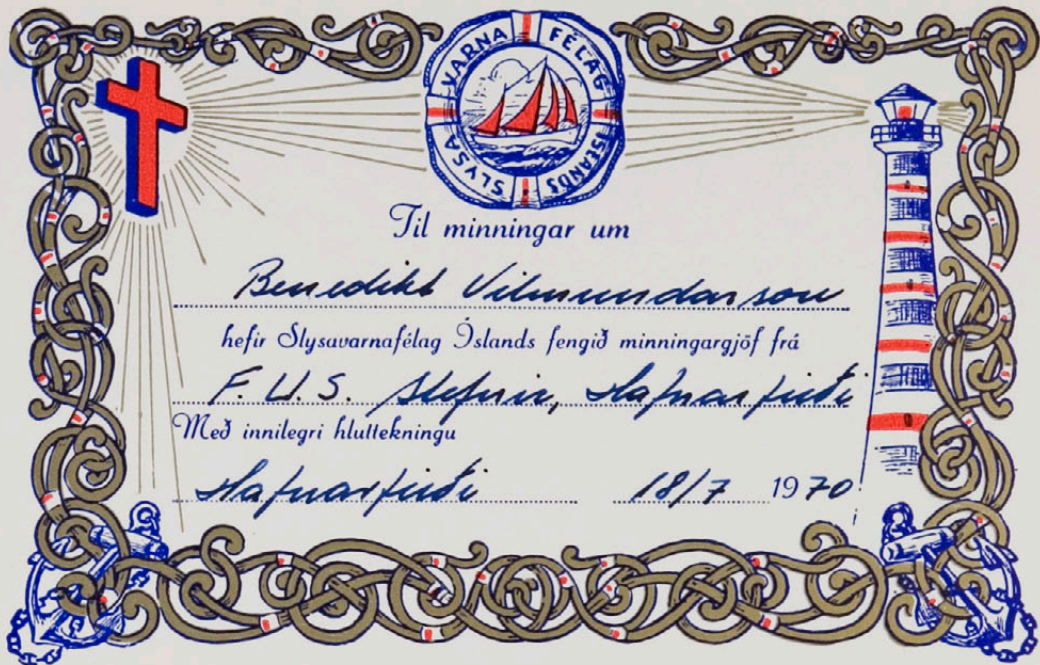 SLYSA VARNA FÉLAG ÍSLANDS
Til minningar um
Benedikt Vilmundarson
hefir Slysavarnafélag Íslands fengið minningargjöf frá
F.U.S. Stefnir, Hafnarfirði
Með innilegri hluttekningu
Hafnarfirði 18/7 1970